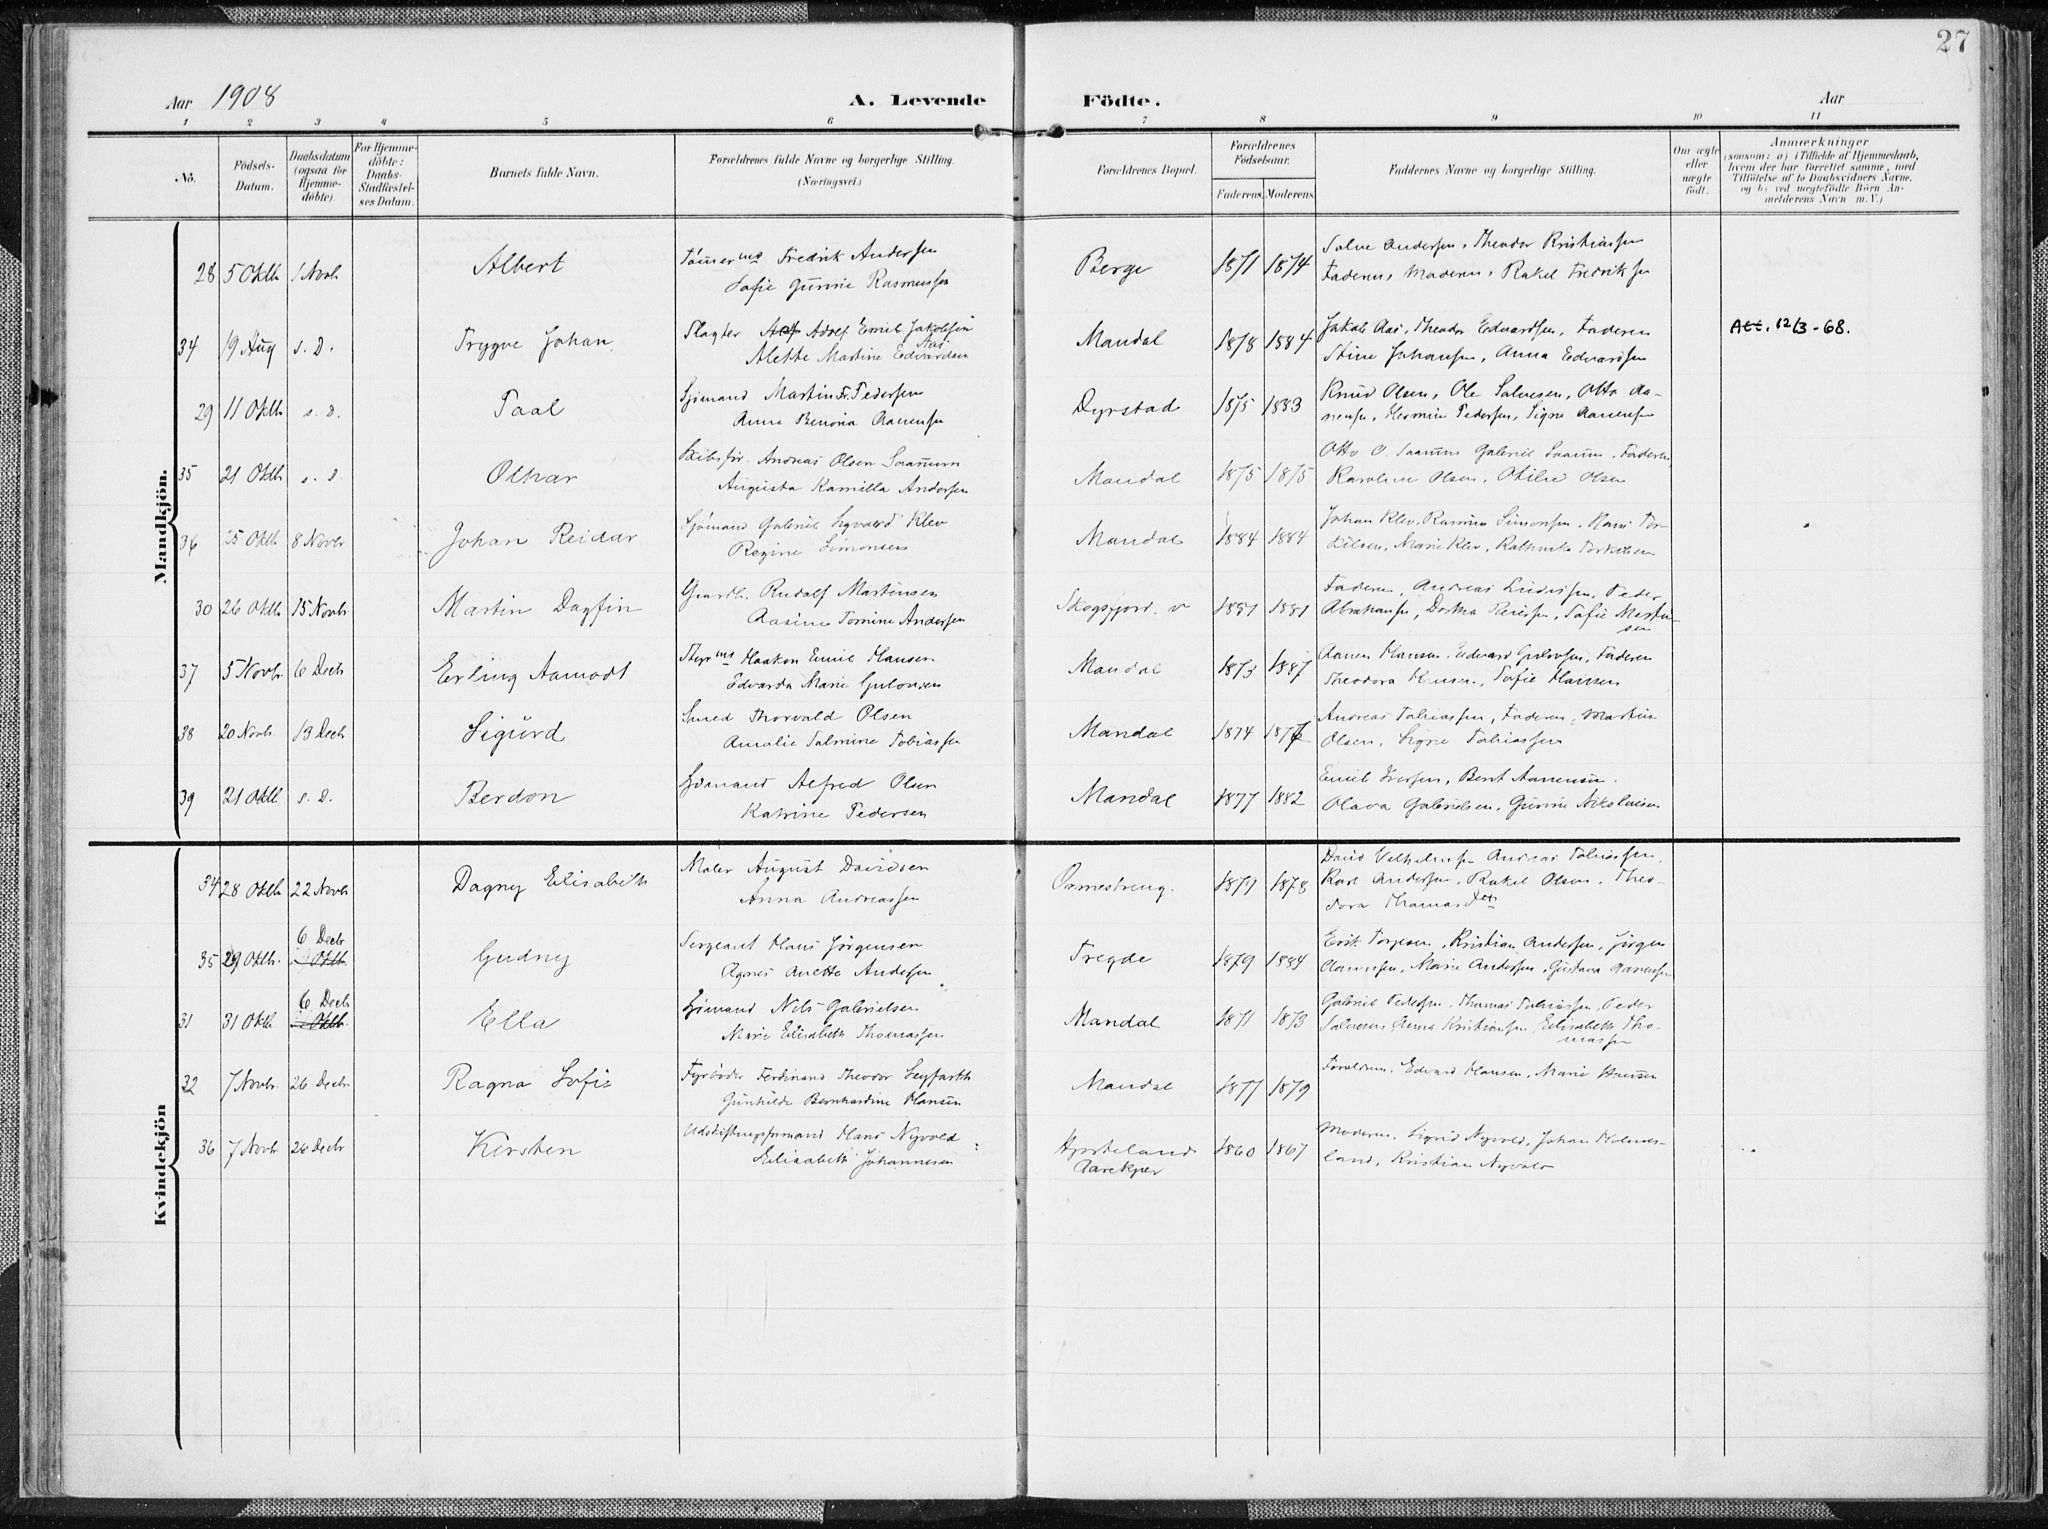 27
Aar 1908
A. Levende Födte.
Aar
1 2 3 4 5 6 7 8 9 10 11
No.
Födsels-Datum.
Daabsdatum (ogsaa for Hjemme-döbte).
For Hjemme-döbte: Daabs-Stadfæstel-ses Datum.
Barnets fulde Navn.
Forældrenes fulde Navne og borgerlige Stilling. (Næringsvei.)
Forældrenes Bopæl.
Forældrenes Födselsaar.
Faderens. Moderens.
Faddernes Navne og borgerlige Stilling.
Om ægte eller uægte födt.
Anmærkninger (saasom: a) i Tilfælde af Hjemmedaab, hvem der har forrettet samme, med Tilföielse af to Daabsvidners Navne, og b) ved uægtefödte Börn An-melderens Navn m. V.)
Mandkjön.
28 5 Oktb 1 Novb Albert Tömmermd Fredrik Anderssen Berge 1871 1874 Salve Anderssen, Theodor Kristianssen
Sofie Gurine Rasmussen Faderen, Moderen, Rakel Fredrikssen
34 19 Aug s. D. Trygve Johan Slagter Adolf Emil Jakobssen Aas Mandal 1878 1884 Jakob Aas, Theodor Edvardssen, Faderen
Alette Martine Edvardsen Stine Johanssen, Anna Edvardssen
Att. 12/3-68.
29 11 Oktb s. D. Paal Sjömand Martin Fr. Pedersen Dyrstad 1875 1883 Knud Olsen, Ole Salvesen, Otto Aa-
Anne Benoria Aanensen nensen, Hermine Pedersen, Signe Aanensen
35 21 Oktb s. D. Othar Skibsför. Andreas Olsen Saanum Mandal 1875 1875 Otto O. Saanum Gabriel Saanum, Faderen,
Augusta Kamilla Andersen Karoline Olsen, Otilie Olsen
36 25 Oktb 8 Novbr Johan Reidar Sjömand Gabriel Sigvald Klev Mandal 1884 1884 Johan Klev, Rasmus Simonsen, Hans Tor-
Regine Simonsen kilsen, Marie Klev, Kathinka Torkilsen
30 26 Oktb 15 Novbr Martin Dagfin Gaardb. Rudolf Martinsen Skogsfjord. v 1881 1881 Faderen, Andreas Ludvissen, Peder
Rasine Tomine Andersen Abrahamsen, Dorthea, Sofie Martin-
sen
37 5 Novbr 6 Decb Erling Aamodt Styrmd Haakon Emil Hansen Mandal 1873 1887 Aanen Hansen, Edvard Gulovsen, Faderen
Edvarda Marie Gulovsen Theodora Hansen, Sofie Hansen
38 20 Novb 13 Decb Sigurd Smed Thorvald Olsen Mandal 1874 1876 Andreas Tobiassen, Faderen, Martin
Amalie Talmine Tobiassen Olsen, Signe Tobiassen
39 21 Oktb s. D. Berdon Sjömand Alfred Olsen Mandal 1877 1882 Emil Iversen, Bent Aanensen.
Katrine Pedersen Olava Gabrielsen, Gurine Nikolaisen
Kvindekjön
34 28 Oktb 22 Novbr Dagny Elisabeth Maler August Davidsen Ormestreng. 1871 1878 David Vilhelmsen Andreas Tobiassen,
Anna Andreassen Karl Andersen, Rakel Olsen, Theo-
dora Thomasdtr
35 29 Oktb. 6 Decb Gudny Sergeant Hans Jörgensen Tregde 1879 1884 Erik Torjesen, Kristian Andersen, Jörgen
Agnes Anette Andersen Aanensen, Marie Andersen, Gustava Aanensen
31 31 Oktb 6 Decb Ella Sjömand Nils Gabrielsen Mandal 1871 1873 Gabriel Pedersen, Thomas Tobiassen, Peder
Marie Elisabeth Thomassen Salvesen Anna Kristiansen, Elisabeth Tho-
massen
32 7 Novbr. 26 Decbr. Ragna Sofie Fyrböder Ferdinand Theodor Seyfarth Mandal 1877 1879 Forældrene, Edvard Hansen, Marie Hansen
Gunhilde Bernhardine Hansen
36 7 Novb 26 Decbr Kirsten Udskiftningsformand Hans Nyvold Hjorteland 1860 1867 Moderen, Sigrid Nyvold, Johan Holmes-
Elisabeth Johannesen Aarekjær land, Kristian Nyvold